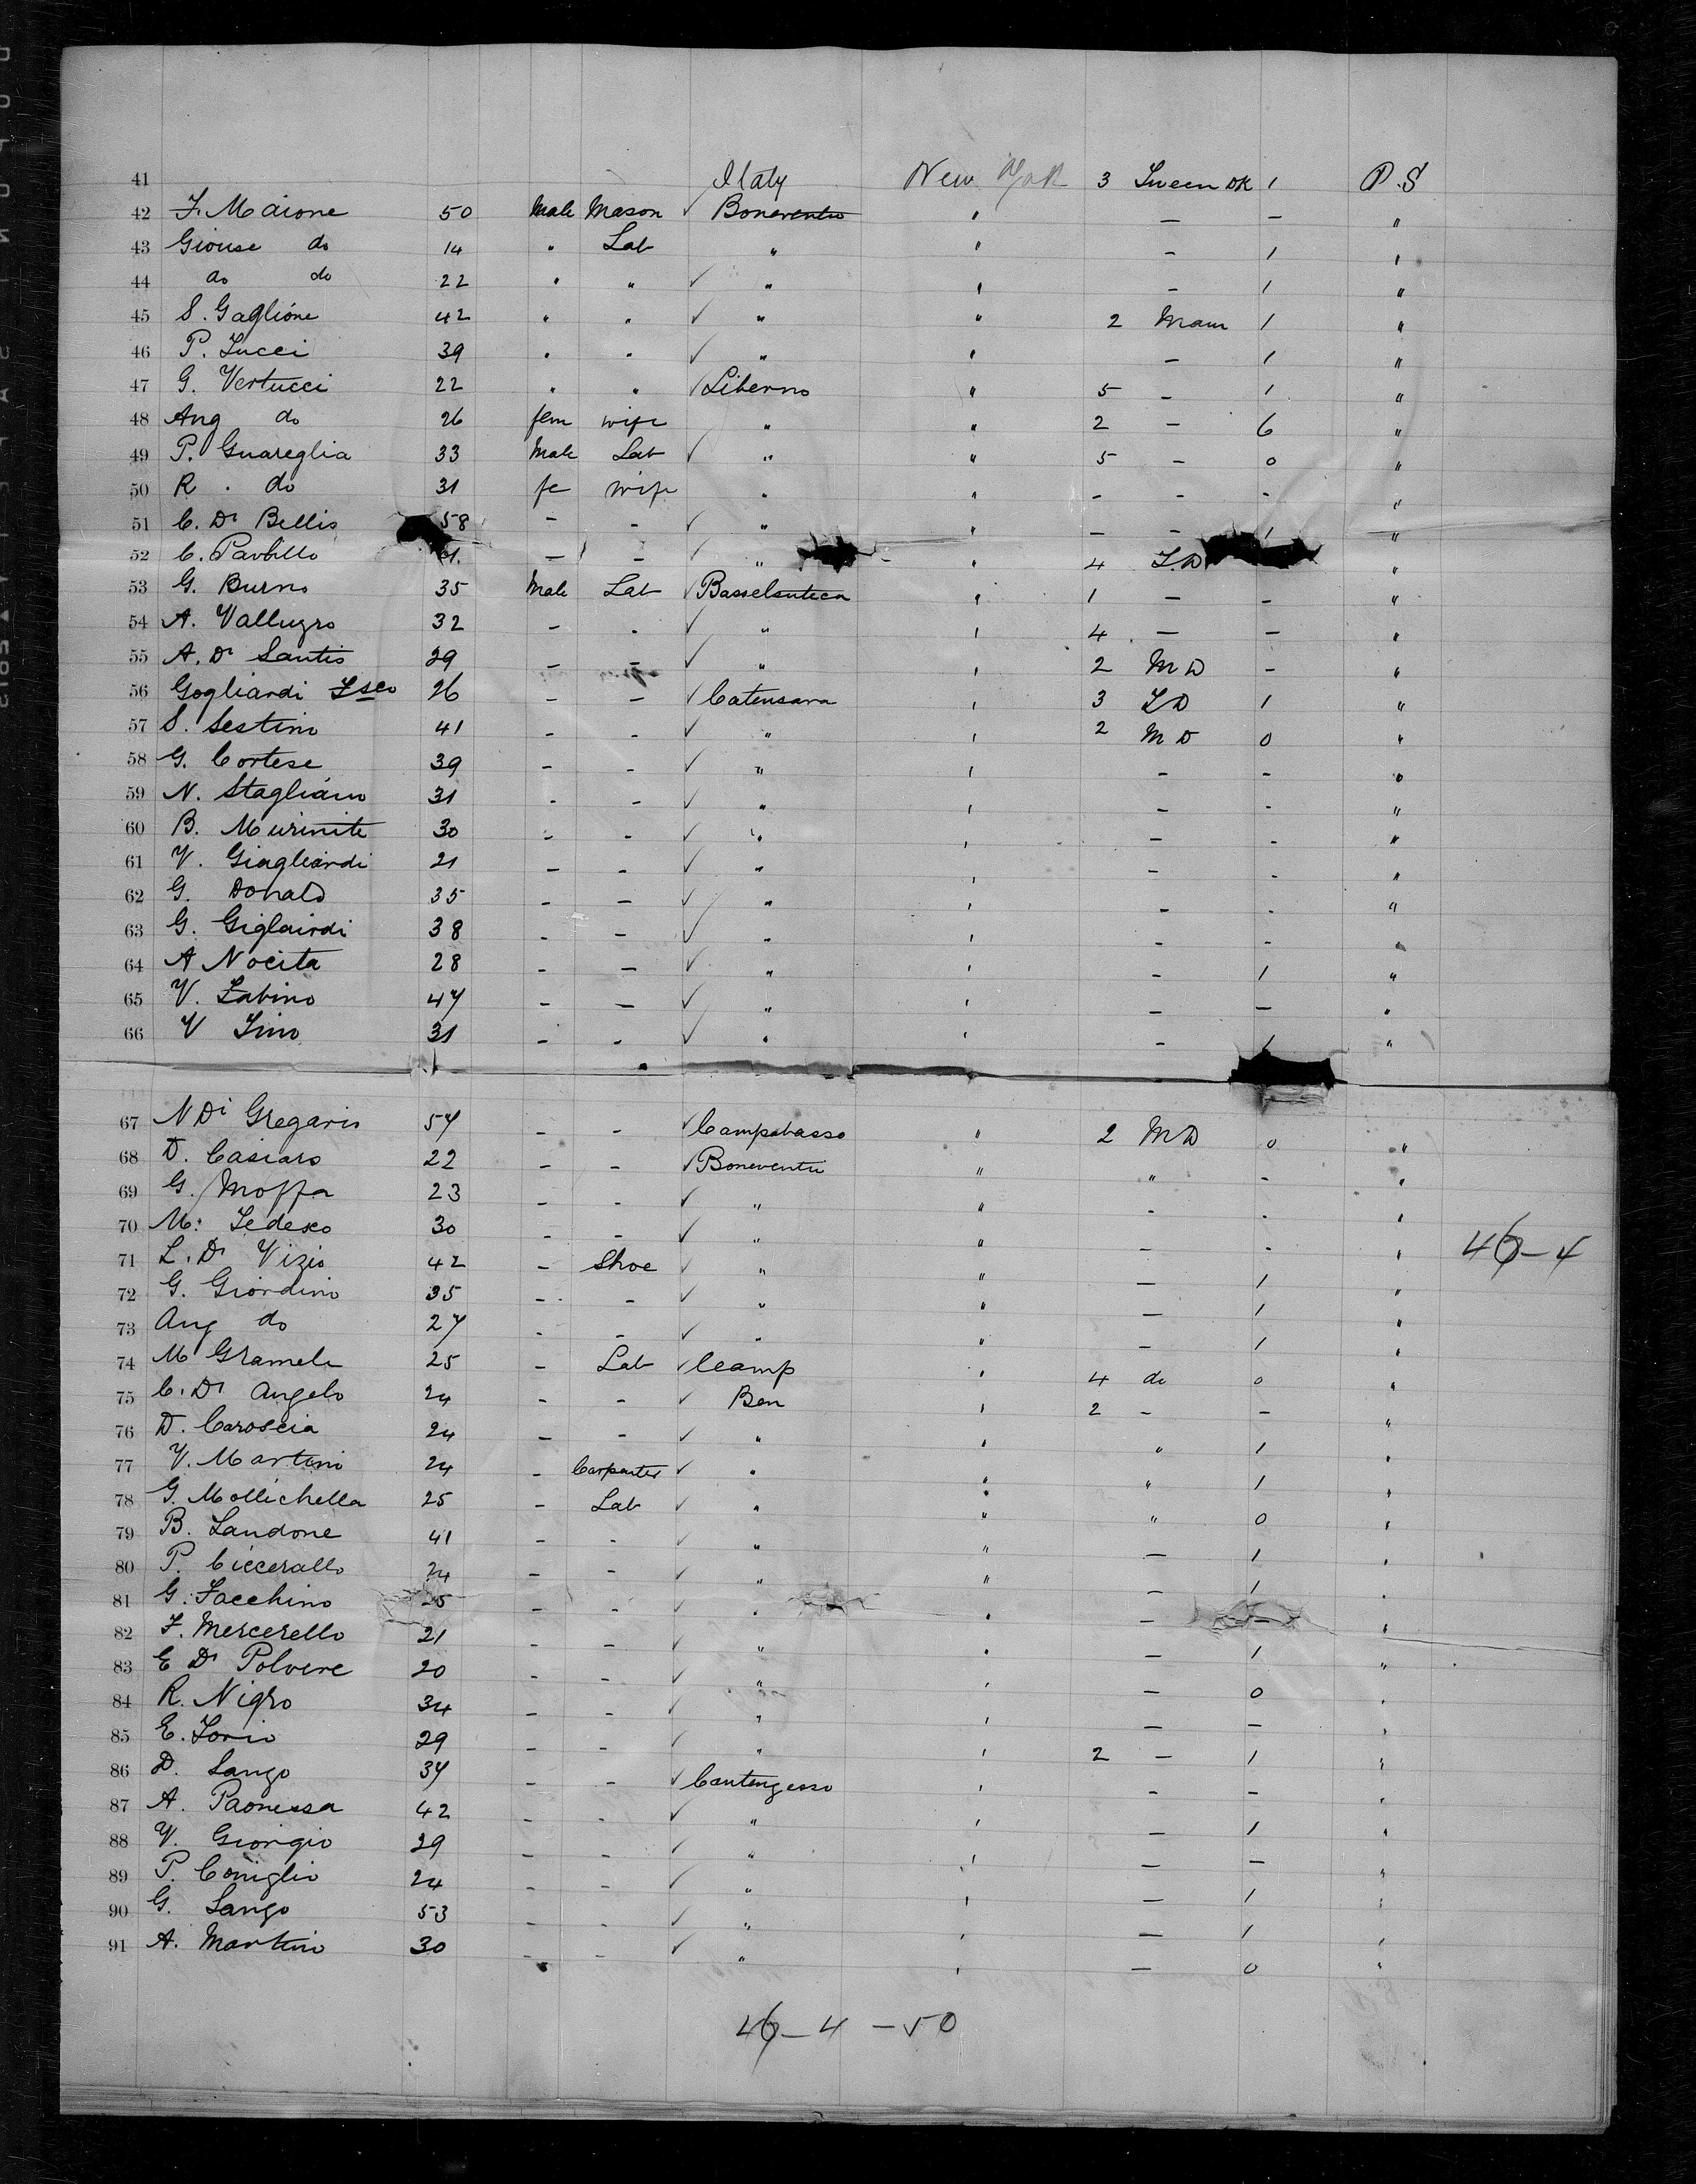 41 Italy New York 3 Tween DK 1 P.S
42 F. Maione 50 Male Mason ✓ Boneventu " — — "
43 Giouse do 14 " Lab " " - 1 "
44 do do 22 " " ✓ " " - 1 "
45 S. Gaglione 42 " " ✓ " " 2 Main 1 "
46 P. Lucci 39 " " ✓ " " — 1 "
47 G. Vertucci 22 " " ✓ Liberno " 5 - 1 "
48 Ang do 26 fem wife " " 2 - 6 "
49 P. Guareglia 33 Male Lab ✓ " " 5 - 0 "
50 R. do 31 fe wife " " - - - "
51 C. Di Bellis 58 - - ✓ " " - - 1 "
52 C. — — ✓ " " 4 L.D "
53 G. Burno 35 Male Lab ✓ Basselsuteca " 1 — - "
54 A. Vallugro 32 - . ✓ " " 4 — — "
55 A. Di Santis 29 - - ✓ " " 2 M D - "
56 Gogliardi Fsco 26 - - ✓ Catensara " 3 L D 1 "
57 S. Sestino 41 - - ✓ " " 2 M D 0 "
58 G. Cortese 39 - - ✓ " " - - "
59 N. Stagliano 31 - - ✓ " " - - "
60 B. Murinite 30 - - ✓ " " - - "
61 V. Giagliardi 21 - - ✓ " " - - "
62 G. Donald 35 - - ✓ " " - - "
63 G. Giglairdi 38 - - ✓ " " - - "
64 A Nocita 28 - — ✓ " " - 1 "
65 V. Labino 47 - — ✓ " " - — "
66 V Iino 31 - - ✓ " " - 1 "
67 N Di Gregario 57 - - ✓ Campobasso " 2 M D 0 "
68 D. Casiaro 22 - - ✓ Boneventu " " - "
69 G. Moffa 23 - - ✓ " " - - "
70 M. Tedesco 30 - - ✓ " " - - " 46-4
71 L. Di Vizio 42 - Shoe ✓ " " — 1 "
72 G. Giordino 35 - - ✓ " " — 1 "
73 Ang do 27 - - ✓ " " — 1 "
74 M Gramele 25 - Lab ✓ Camp " 4 do 0 "
75 C. Di Angelo 24 - - ✓ Ben " 2 - — "
76 D. Caroscia 24 - - ✓ " " " 1 "
77 V. Martini 24 - Carpenter ✓ " " " 1 "
78 G. Mollichella 25 - Lab ✓ " " " 0 "
79 B. Landone 41 - - ✓ " " — 1 "
80 P. Ciccerallo 24 - - ✓ " " — 1 "
81 G. Facchino 25 - - ✓ " " — — "
82 F. Mercerello 21 - - ✓ " " — 1 "
83 E Di Polvere 20 - - ✓ " " — 0 "
84 R. Nigro 34 - - ✓ " " — — "
85 E. Iorio 29 - - ✓ " " 2 — 1 "
86 D. Lango 37 - - ✓ Cantengesso " - - "
87 A. Paonessa 42 - - ✓ " " — 1 "
88 V. Giorigio 29 - - ✓ " " — — "
89 P. Coniglio 24 - - ✓ " " — 1 "
90 G. Lango 53 - - ✓ " " — 1 "
91 A. Martino 30 - - ✓ " " — 0 "
46-4-50